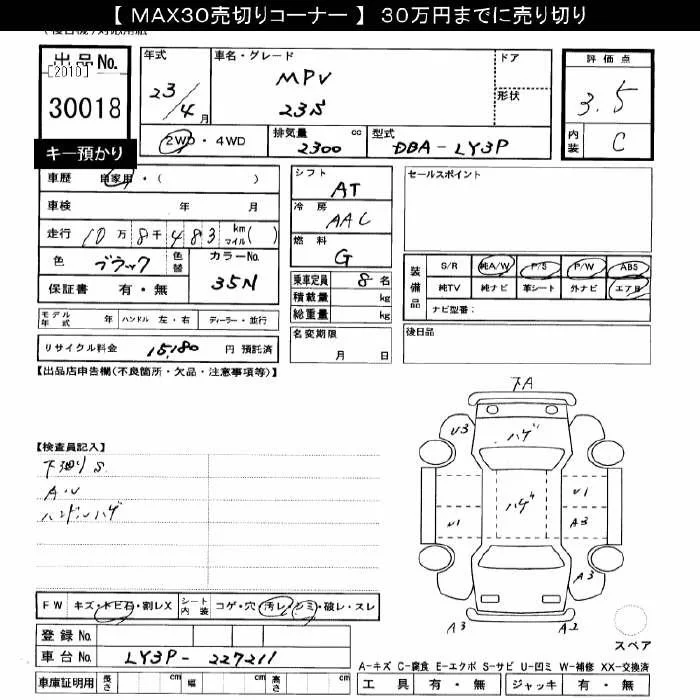 【 MAX30売切りコーナー 】 30万円までに売り切り
出品No.
[2010]
30018
キー預かり
年式
23/4月
車名・グレード
MPV
23S
ドア
形状
評価点
3.5
内装
C
2WD・4WD
排気量
2300 cc
型式
DBA-LY3P
車歴 自家用・( )
車検 年 月
走行 10万8千483 km マイル( )
色 ブラック 色替
カラーNo.
35N
保証書 有・無
シフト
AT
冷房
AAC
燃料
G
乗車定員 8名
積載量 kg
総重量 kg
セールスポイント
装備品
S/R 純A/W P/S P/W ABS
純TV 純ナビ 革シート 外ナビ エアB
ナビ型番:
モデル年式 年 ハンドル 左・右 ディーラー・並行
名変期限
月 日
後日品
リサイクル料金 15,180 円 預託済
【出品店申告欄(不良箇所・欠品・注意事項等)】
【検査員記入】
下廻りS
A・U
ハンドルハゲ
下A
U3
ハゲ
ハゲ
U1
U1
A3
A3
A3
A2
スペア
FW キズ・トビ石・割レX
シート内装 コゲ・穴・汚レ・シミ・破レ・スレ
登録No.
車台No. LY3P-227211
車庫証明用 長さ cm 幅 cm 高さ cm
A-キズ C-腐食 E-エクボ S-サビ U-凹ミ W-補修 XX-交換済
工具 有・無 ジャッキ 有・無